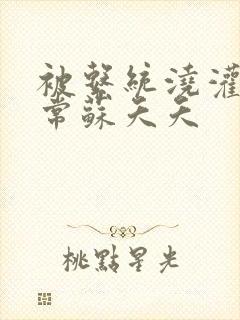 被繫統澆灌
常蘇夭夭
桃點星光